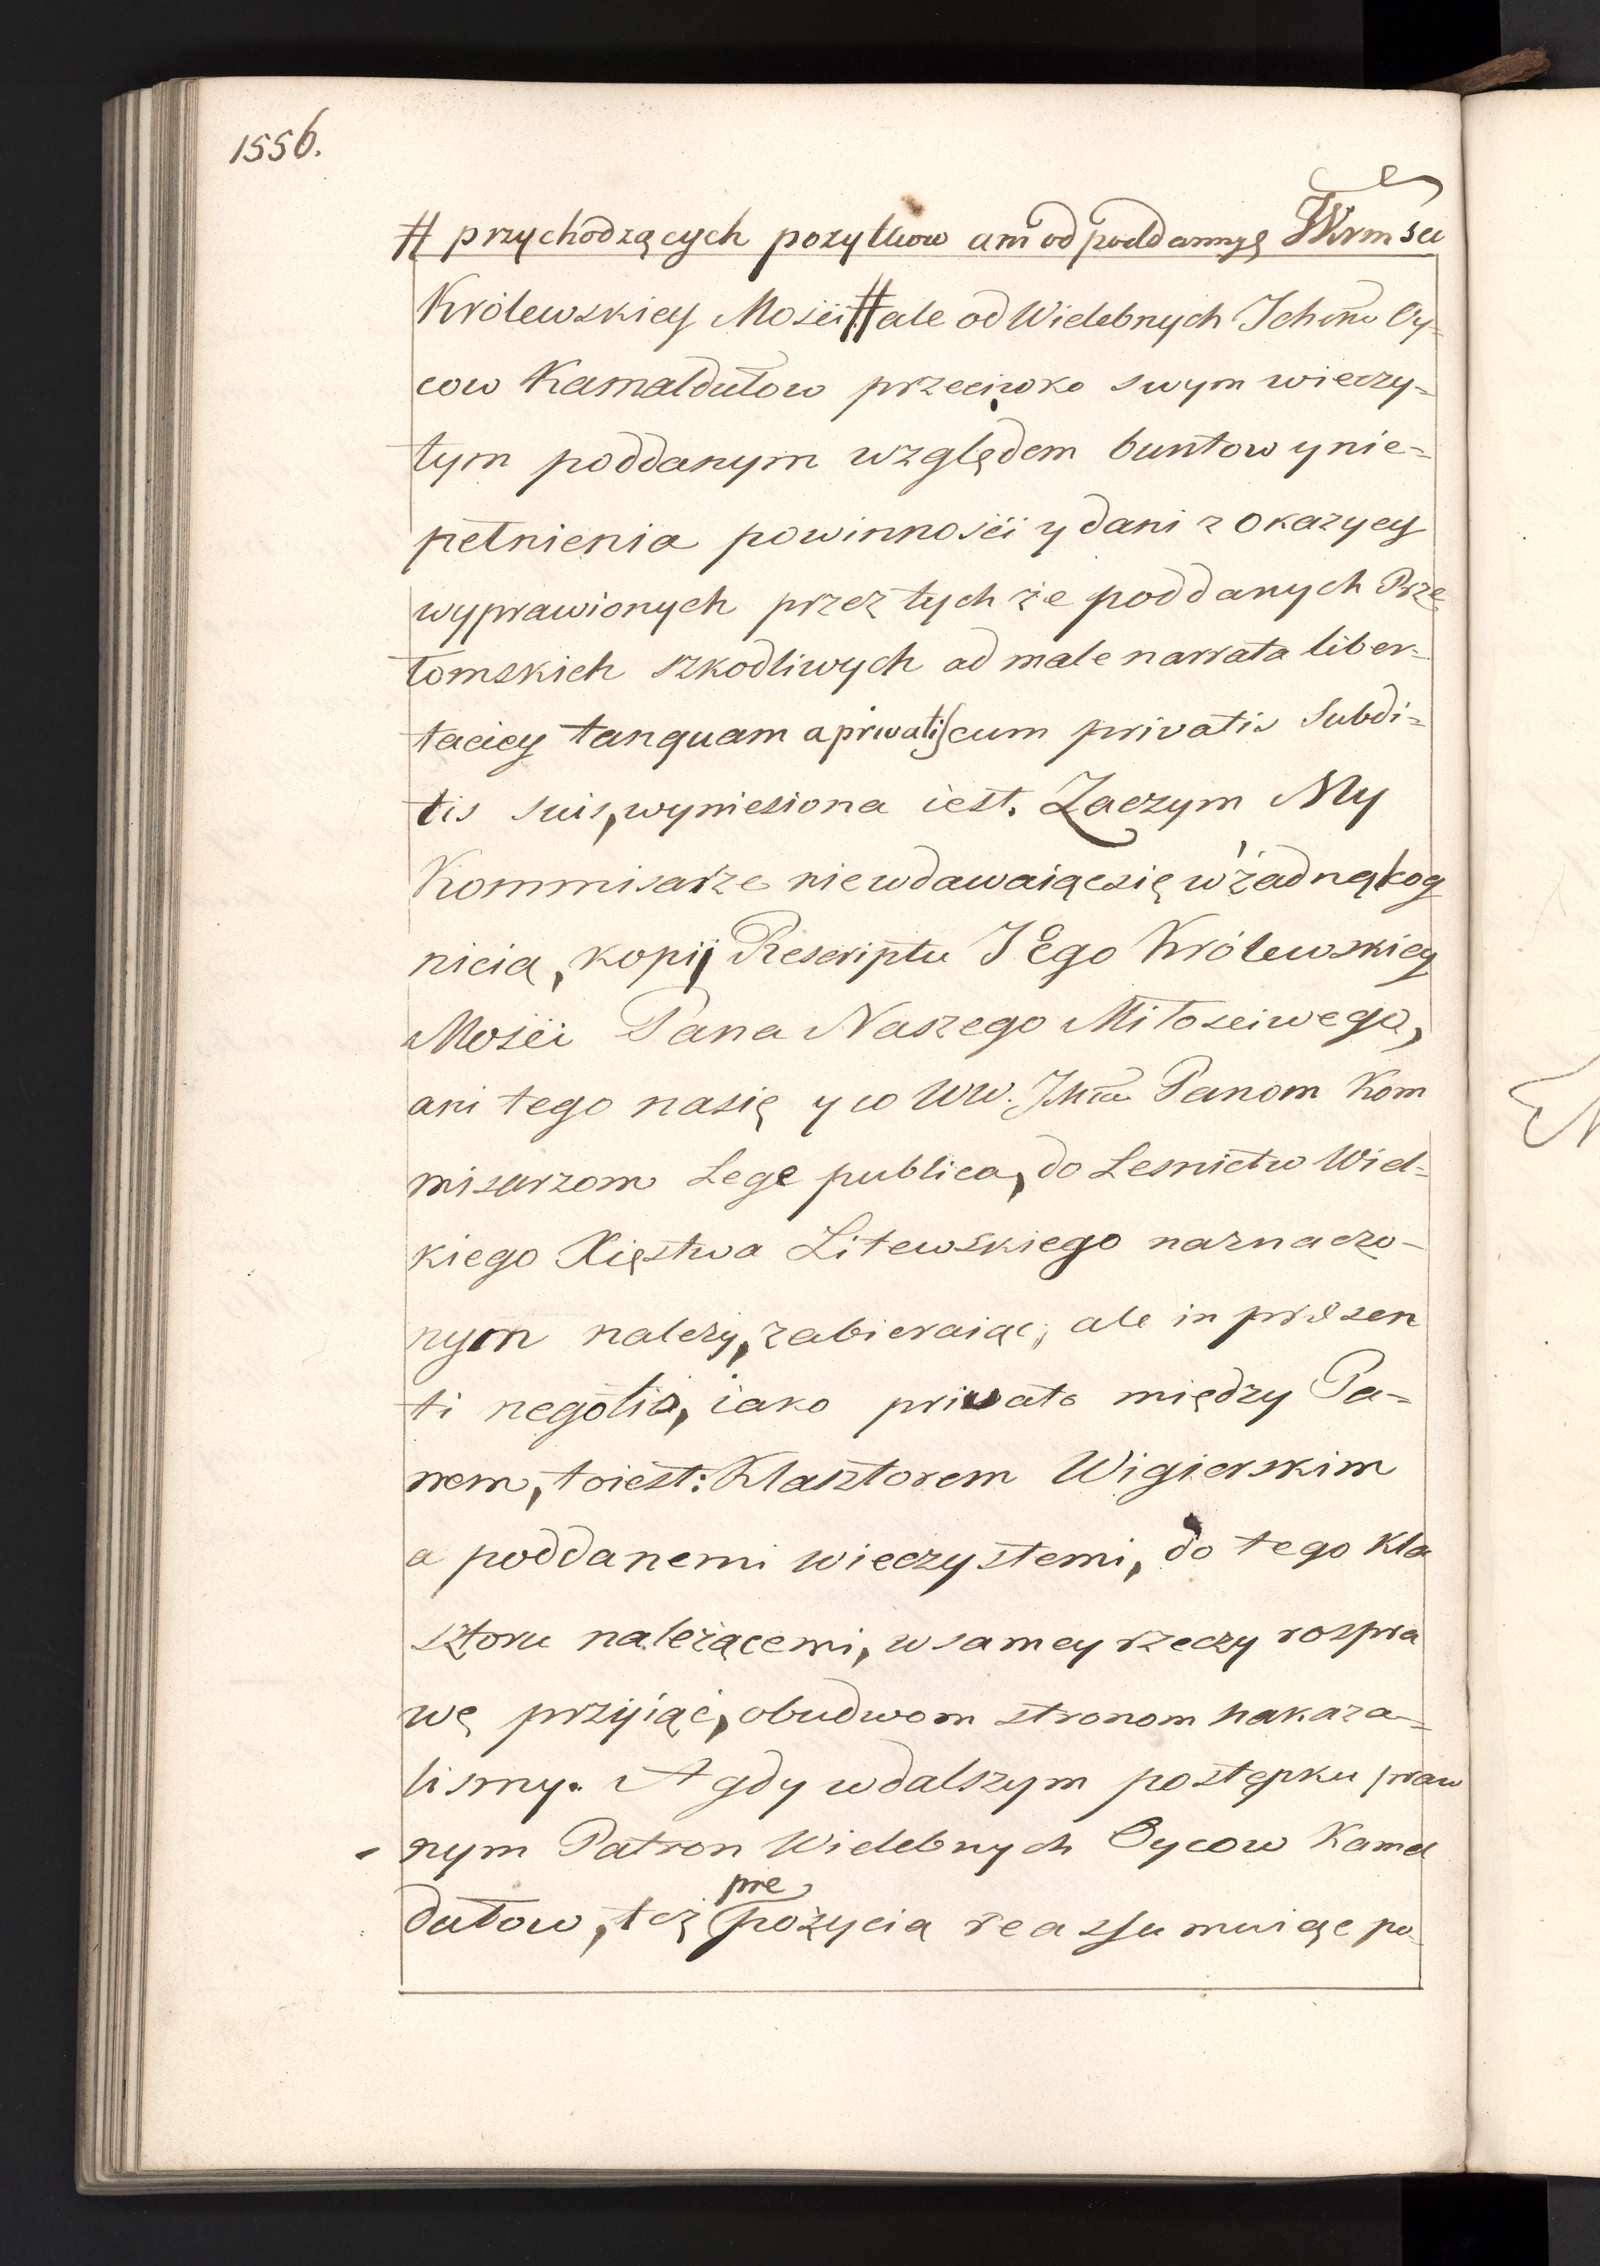 1556.
# przychodzących pozytkow ani od poddannych
Królewskiey Mości # ale od Wielebnych Ichmw Oy-
cow Kamaldułow przeciwko swym wierzy-
tym poddanym względem buntow y nie-
pełnienia powinności y dani z okazyey
wyprawionych przez tych że poddanych Prze
łomskich szkodliwych ad male narrata liber-
taciey tanquam a privatis cum privatis Subdi-
tis suis, wyniesiona iest. Zaczym My
Kommisarze niewdawaiąc się w żadną kog
nicią, kopij Rescriptu JEgo Królewskiey
Mości Pana Naszego Miłosciwego,
ani tego nasię y co WW. Jmciu Panom Kom
misarzom Lege publica, do Lesnictw Wiel-
kiego Xięstwa Litewskiego naznaczo-
nym nalezy, zabieraiąc, ale in præsen
ti negotio, iako privato między Pa-
nem, to iest: Klasztorem Wigierskim
a poddanemi wieczystemi, do tego Kla
sztoru należącemi, w samey rzeczy rospra
wę przyiąć, obudwom stronom nakaza-
lismy. A gdy w dalszym postępku praw
nym Patron Wielebnych Oycow Kamal
dułow, też prepożycią reassumuiąc po-